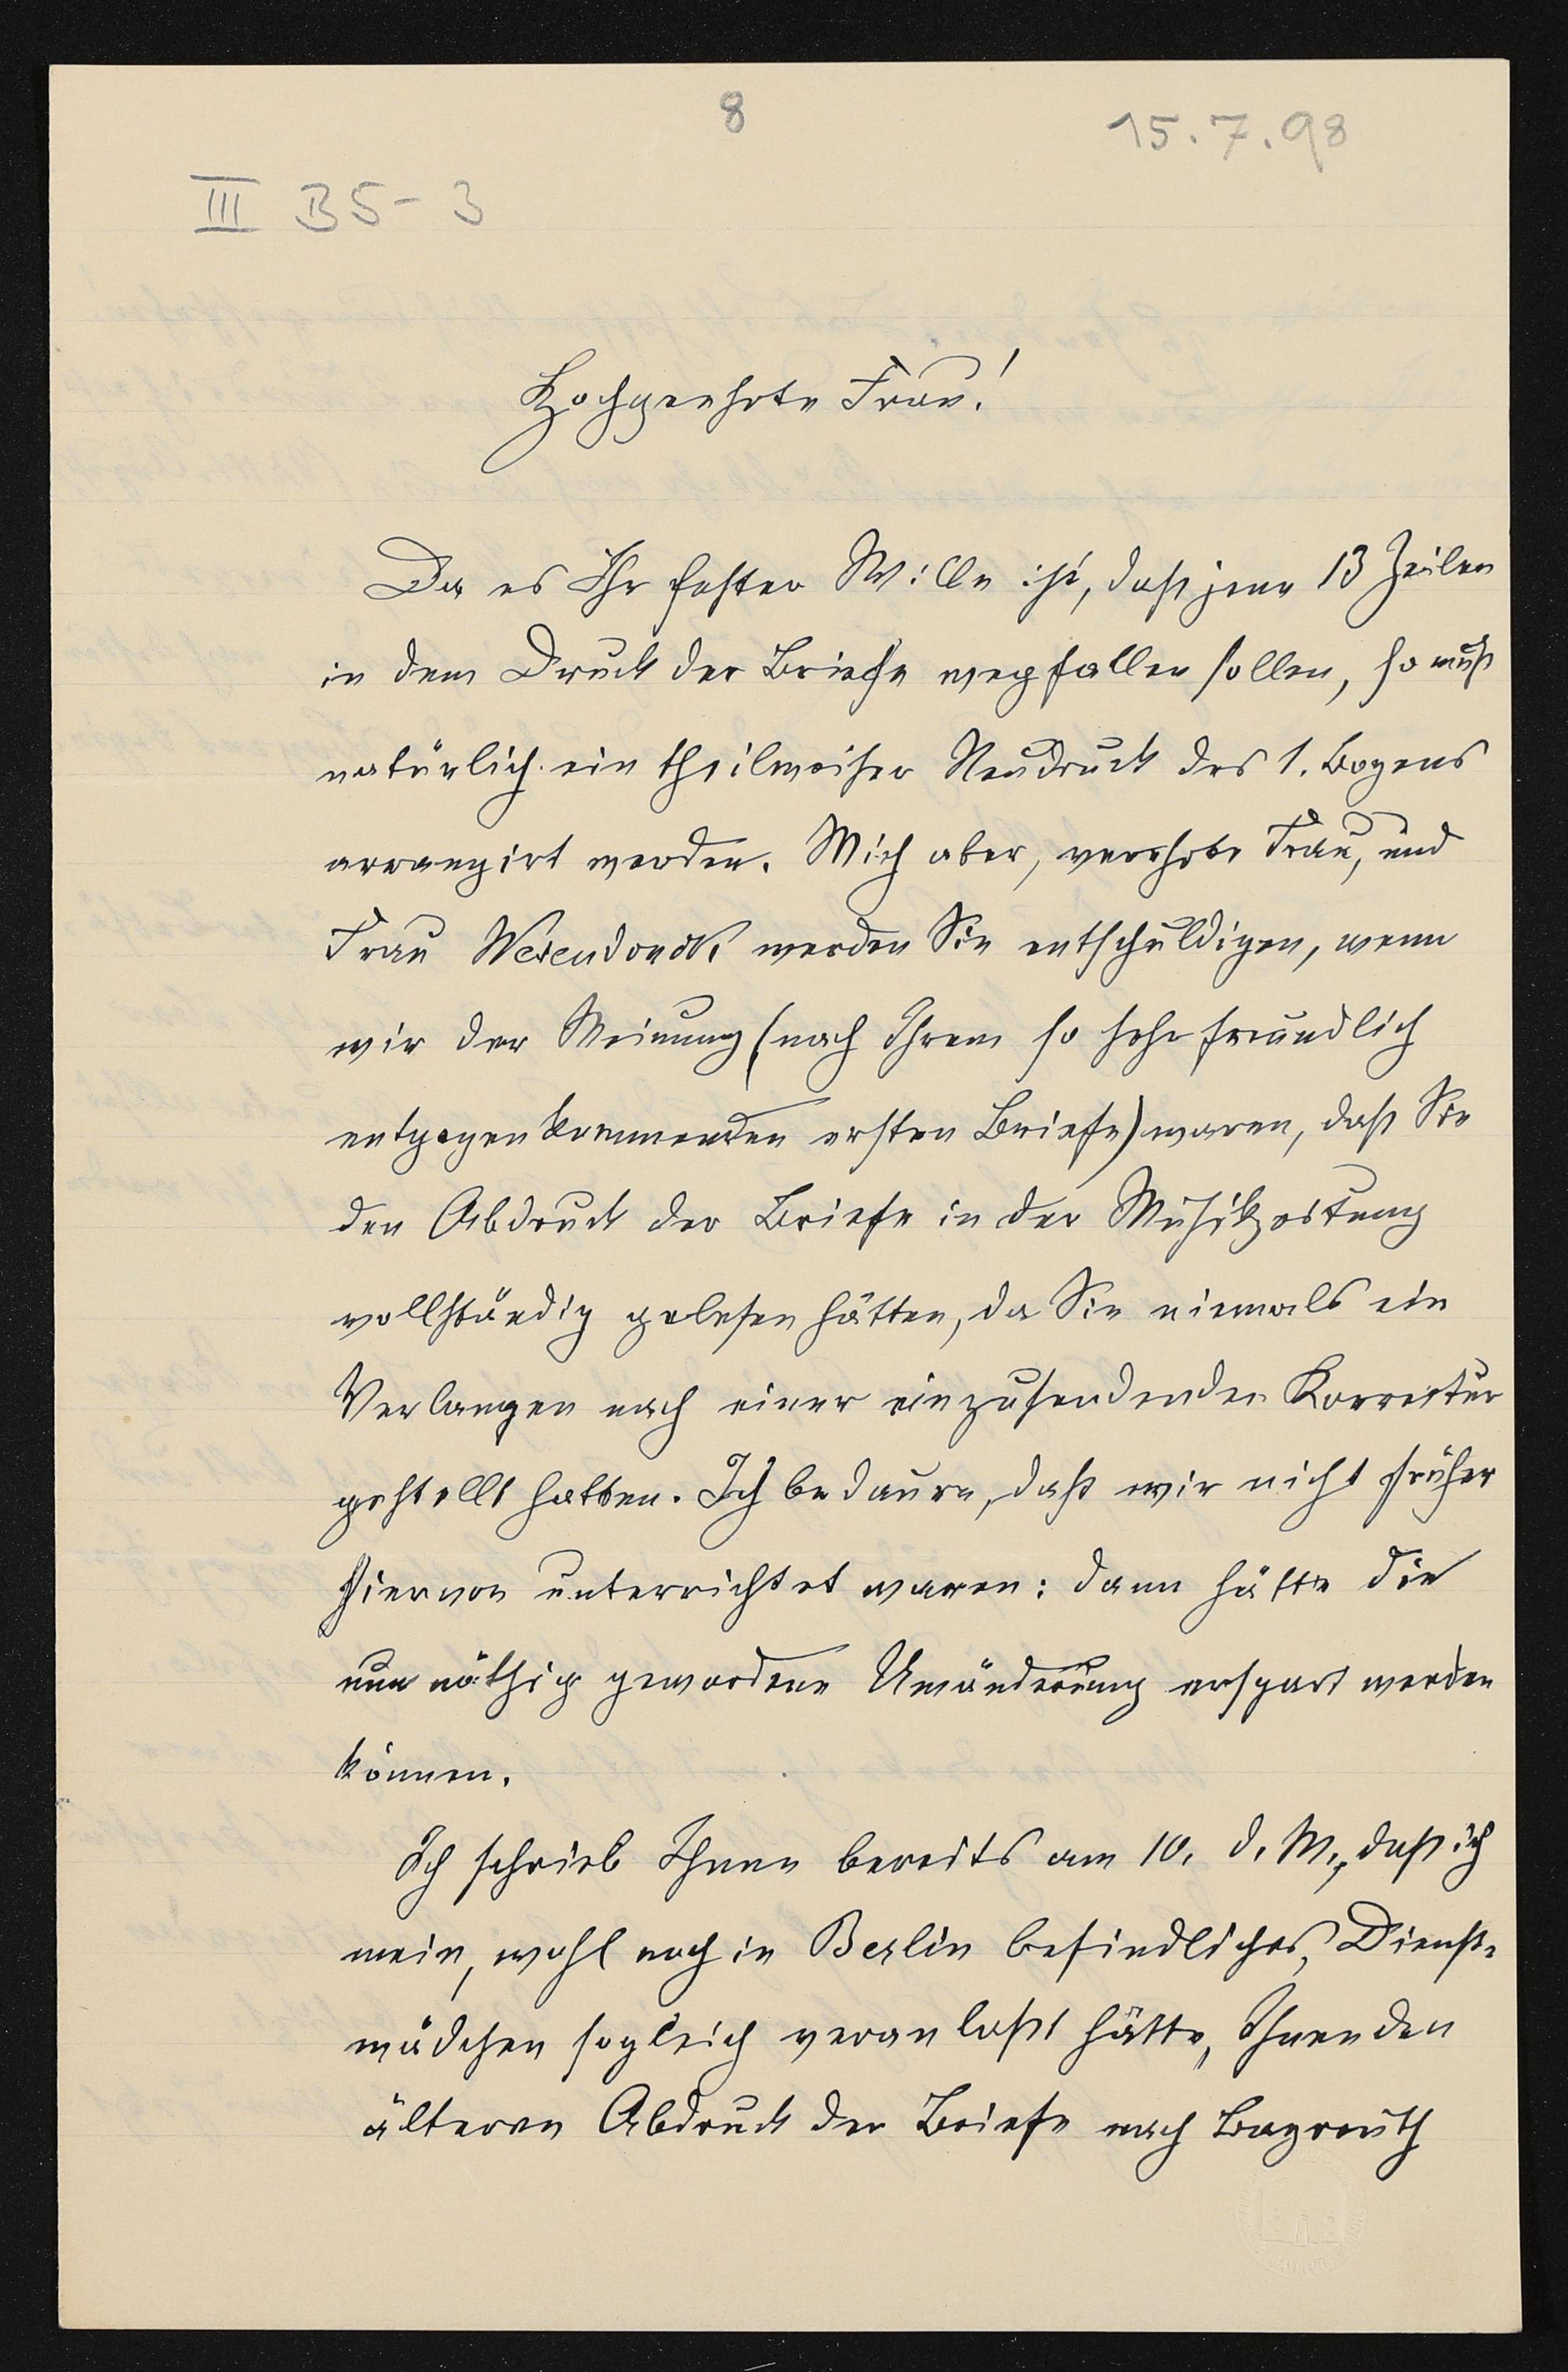 8
15.7.98
III B5-3
Hochgeehrte Frau!
Da es Ihr fester Wille ist, daß jene 13 Zeilen
in dem Druck der Briefe wegfallen sollen, so muß
natürlich ein theilweiser Neudruck des 1. Bogens
arrangirt werden. Mich aber, verehrte Frau, und
Frau Wesendonck werden Sie entschuldigen, wenn
wir der Meinung (nach Ihrem so sehr freundlich
entgegenkommenden ersten Briefe) waren, daß Sie
den Abdruck der Briefe in der Musikzeitung
vollständig gelesen hätten, da Sie niemals ein
Verlangen nach einer einzusendenden Korrektur
gestellt hatten. Ich bedaure, daß wir nicht früher
hiervon unterrichtet waren: dann hätte die
nun nöthig gewordene Umänderung erspart werden
können.
Ich schrieb Ihnen bereits am 10. d. M., daß ich
mein, wohl noch in Berlin befindliches, Dienst-
mädchen sogleich veranlaßt hätte, Ihnen den
älteren Abdruck der Briefe nach Bayreuth